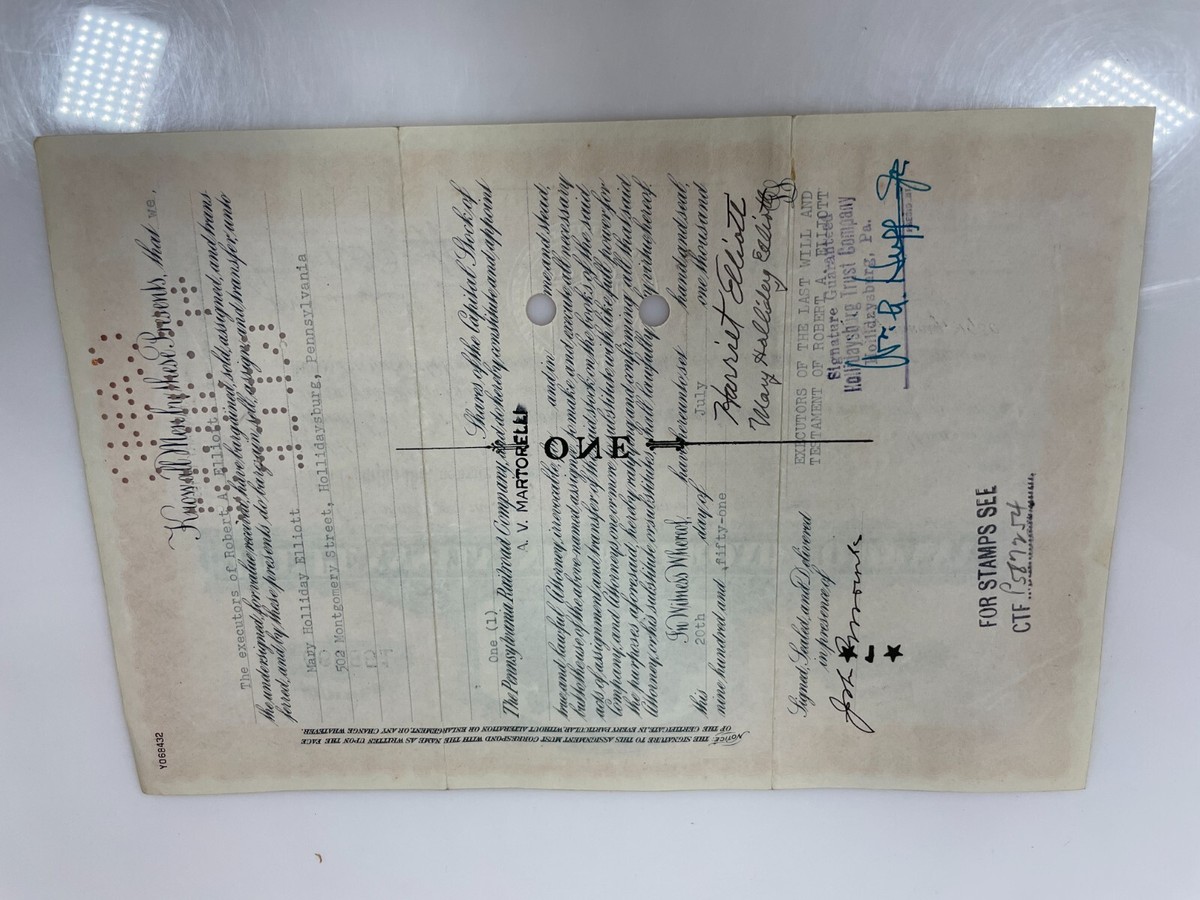 Know all Men by these Presents, that we,
The executors of Robert A. Elliott
the undersigned, for value received, have bargained, sold, assigned, and trans
ferred, and by these presents do bargain, sell, assign, and transfer, unto
Mary Holliday Elliott
502 Montgomery Street, Hollidaysburg, Pennsylvania
One (1) Shares of the Capital Stock of
The Pennsylvania Railroad Company, and do hereby constitute and appoint
A. V. MARTORELLI
true and lawful Attorney, irrevocable, and in name and stead,
but to the use of the above named assignee to make and execute all necessary
acts of assignment and transfer of the said stock on the books of the said
Company, and Attorneys one or more to substitute with like full power for
the purposes aforesaid, hereby ratifying and confirming all that said
Attorney, or his substitute or substitutes, shall lawfully do by virtue hereof.
In Witness Whereof, have hereunto set hand and seal,
this 20th day of July one thousand
nine hundred and fifty-one
ONE
1
Harriet Elliott
Mary Holliday Elliott
EXECUTORS OF THE LAST WILL AND
TESTAMENT OF ROBERT A. ELLIOTT
Signature Guaranteed
Hollidaysburg Trust Company
Hollidaysburg, Pa.
Signed, Sealed, and Delivered
in presence of
FOR STAMPS SEE
CTF P587254
NOTICE. THE SIGNATURE TO THIS ASSIGNMENT MUST CORRESPOND WITH THE NAME AS WRITTEN UPON THE FACE
OF THE CERTIFICATE, IN EVERY PARTICULAR, WITHOUT ALTERATION OR ENLARGEMENT, OR ANY CHANGE WHATEVER.
Y068432